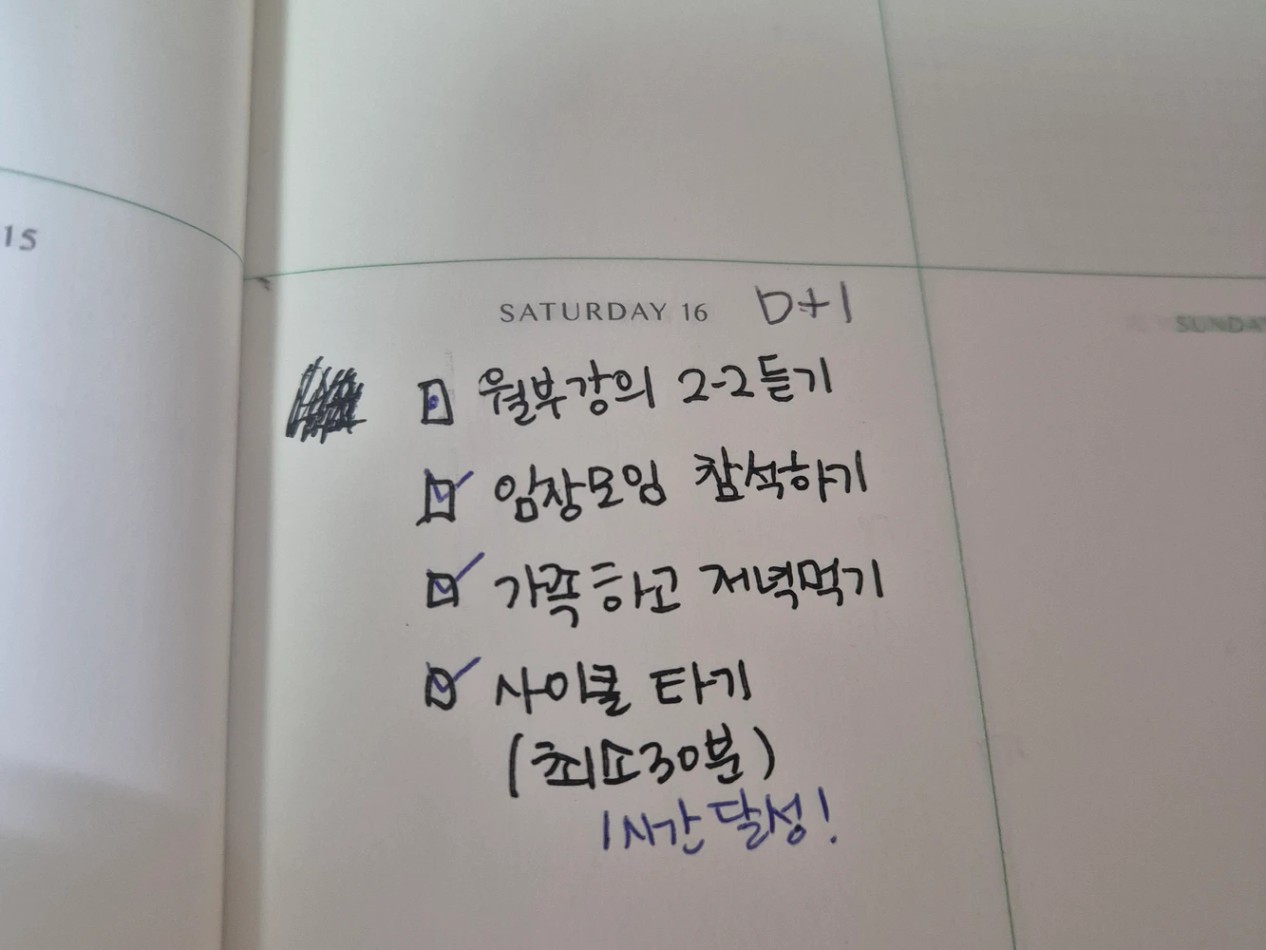 15
SATURDAY 16 D+1
월부강의 2-2 듣기
임장모임 참석하기
가족하고 저녁먹기
사이클 타기
(최소30분)
1시간 달성!